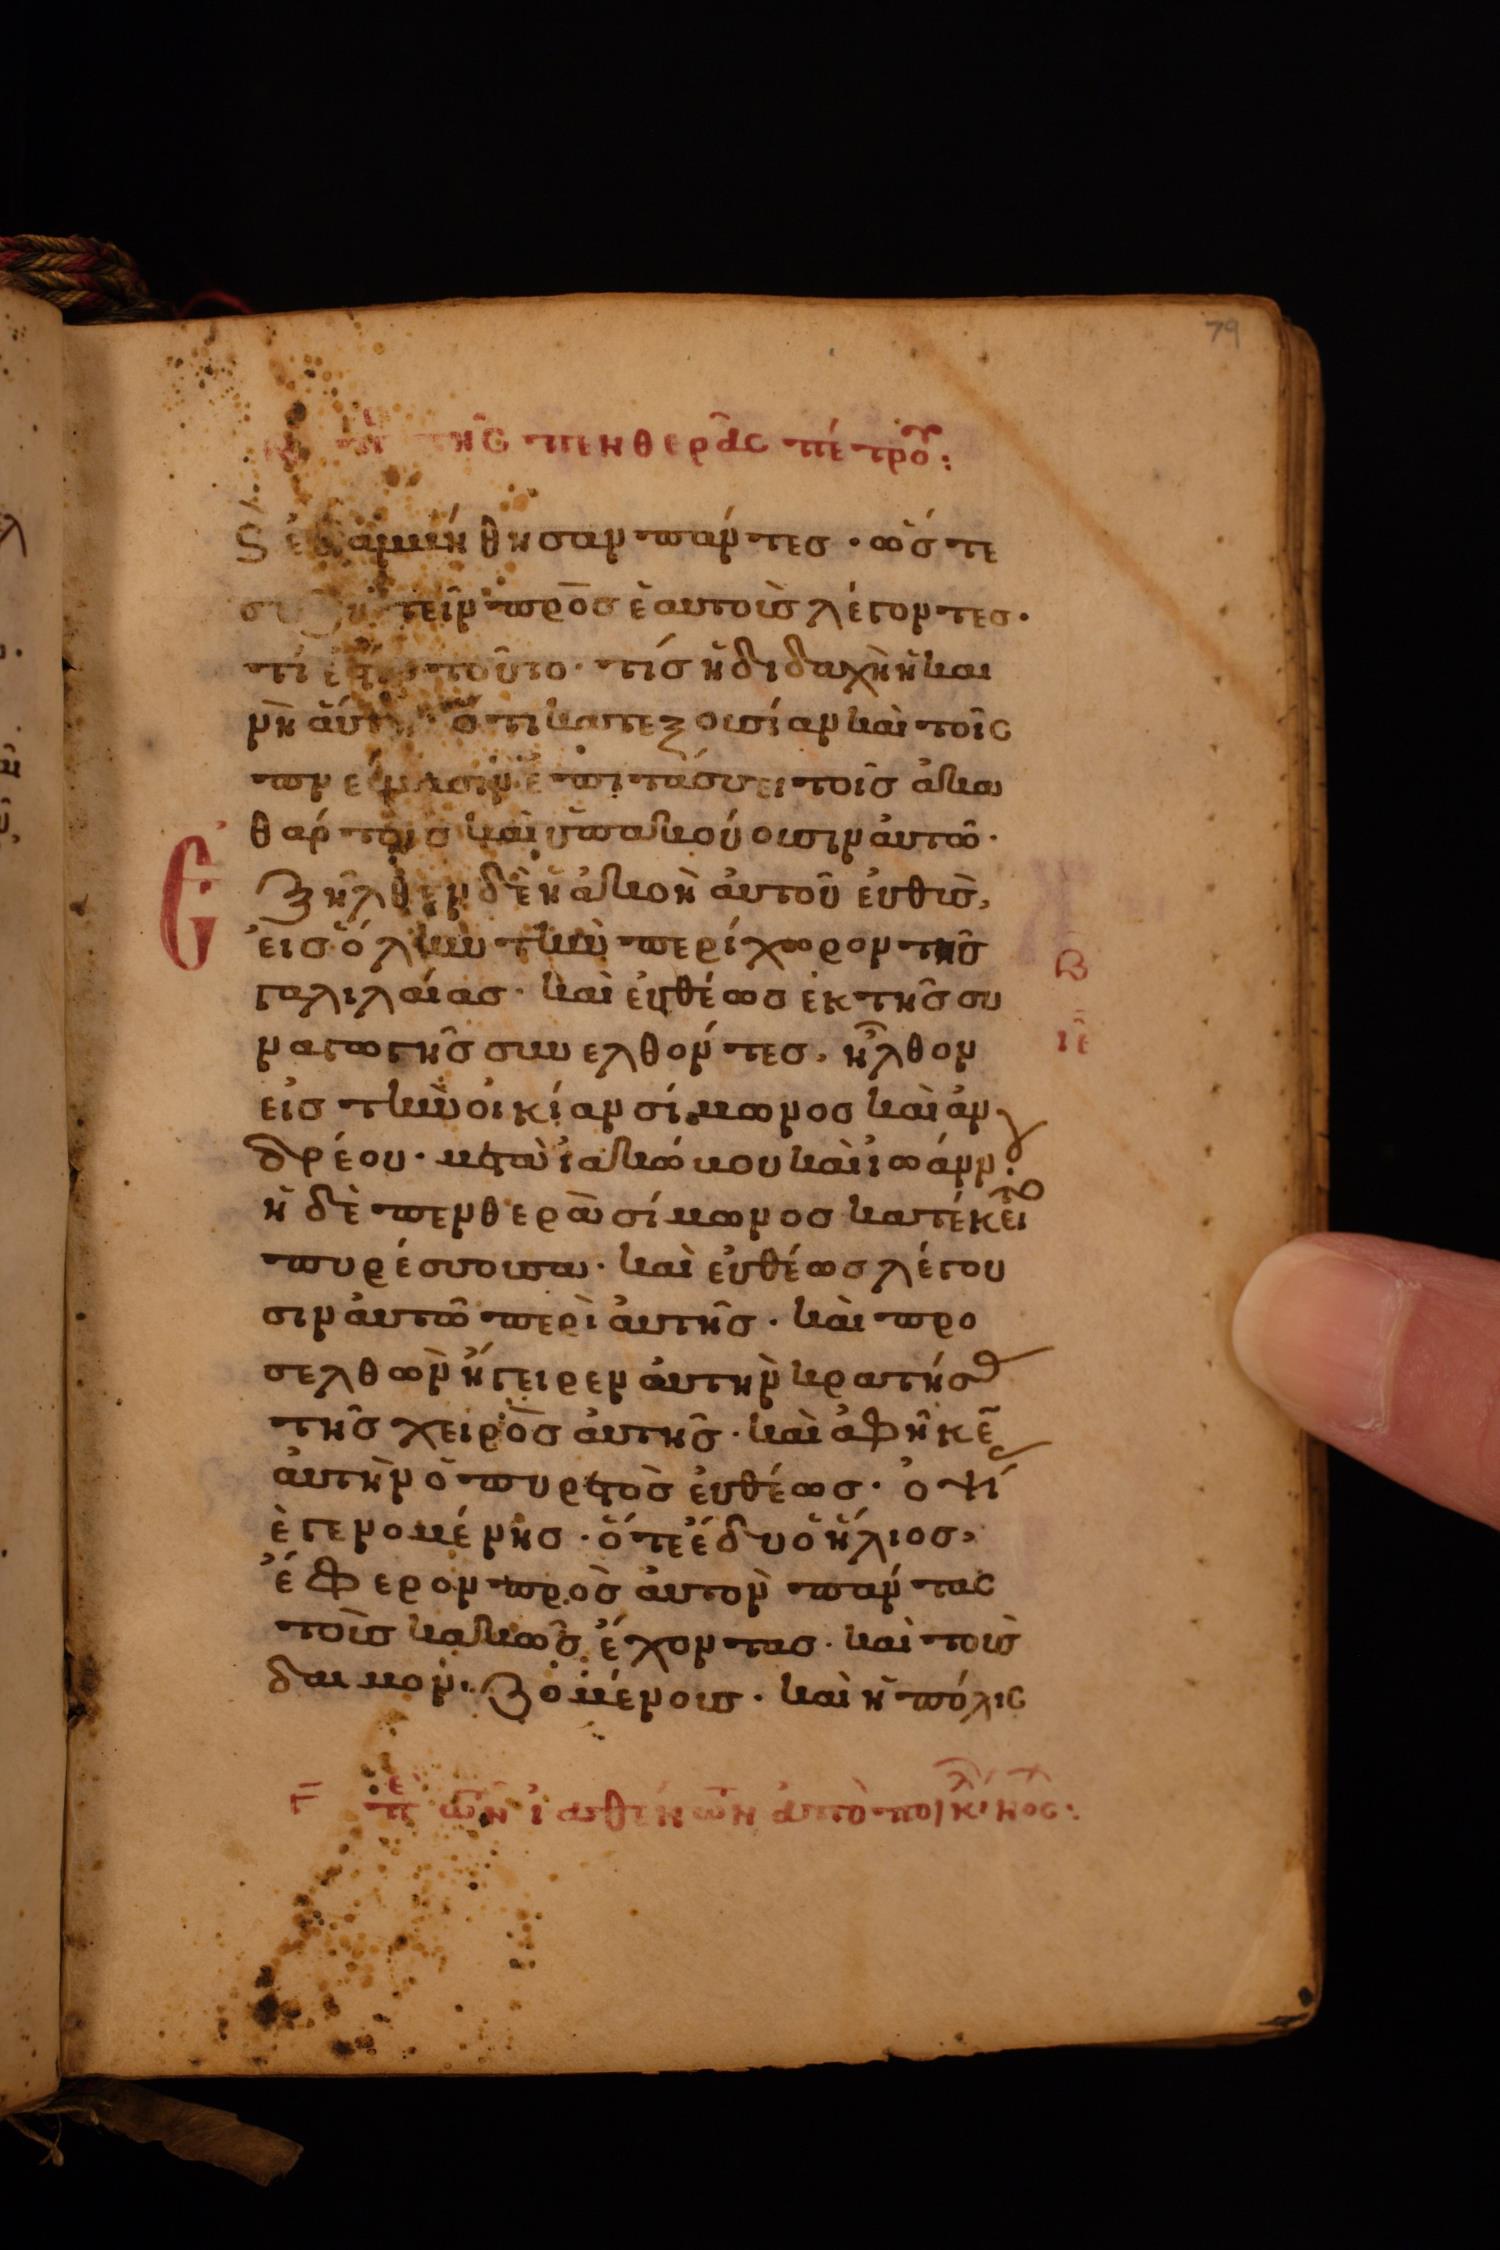 79
τῆς πενθερᾶς πέτρου:
ϗ ἐθαμβήθησαν πάντες · ὥστε
συζητεῖν πρὸς ἑαυτοὺς λέγοντες ·
τί ἐστι τοῦτο · τίς ἡ διδαχὴ ἡ και
νὴ αὕτη ὅτι κατεξουσίαν καὶ τοῖς
πνεύμασιν ἐπιτάσσει τοῖς ἀκα
θάρτοις καὶ ὑπακούουσιν αὐτῶ ·
Ἐξῆλθεν δὲ ἡ ἀκοὴ αὐτοῦ ἐυθὺς,
εἰς ὅλην τὴν περίχωρον τῆς
γαλιλαίας · καὶ ἐυθέως ἐκ τῆς συ
ναγωγῆς συνελθόντες, ἦλθον
εἰς τὴν οἰκίαν σίμωνος καὶ ἀν
δρέου · μετὰ ἰακώμου καὶ ἰωάνν
ἡ δὲ πενθερὰ σίμωνος κατέκειτο
πυρέσσουσα · καὶ ἐυθέως λέγου
σιν ἀυτῶ περὶ ἀυτῆς · καὶ προ
σελθὼν ἤγειρεν ἀυτὴν κρατήσ
τῆς χειρὸς ἀυτῆς · καὶ ἀφῆκε
ἀυτὴν ὁ πυρετὸς ἐυθέως · ὀψί
ἐγενομένης · ὅτε ἔδυ ὁ ἥλιος,
ἔφερον πρὸς ἀυτὸν πάντας
τοὺς κακῶς ἔχοντας · καὶ τοὺς
δαιμονιζομένους · καὶ ἡ πόλις
β
ιε
γ πε ὧν ἰαθέν ὧν ἀπὸ ποικιλ νος: